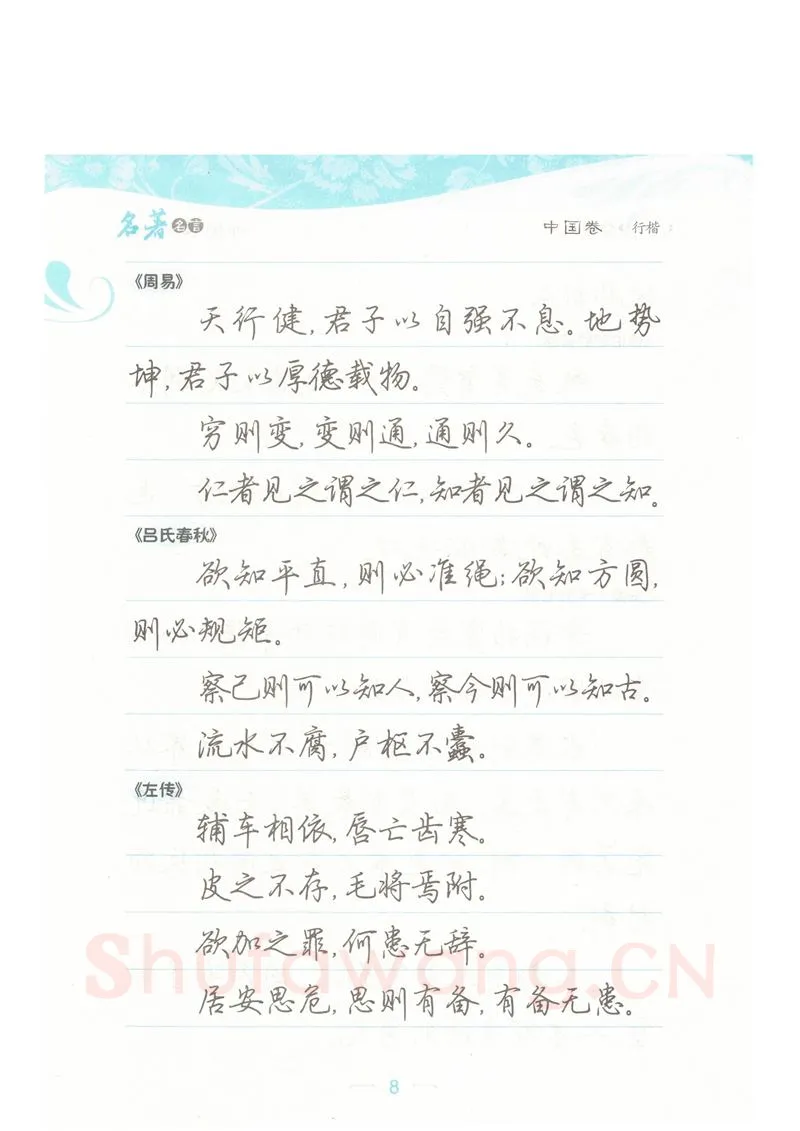 名著名言
中国卷 行楷
《周易》
天行健,君子以自强不息。地势
坤,君子以厚德载物。
穷则变,变则通,通则久。
仁者见之谓之仁,知者见之谓之知。
《吕氏春秋》
欲知平直,则必准绳;欲知方圆,
则必规矩。
察己则可以知人,察今则可以知古。
流水不腐,户枢不蠹。
《左传》
辅车相依,唇亡齿寒。
皮之不存,毛将焉附。
欲加之罪,何患无辞。
Shufawang.CN
居安思危,思则有备,有备无患。
8